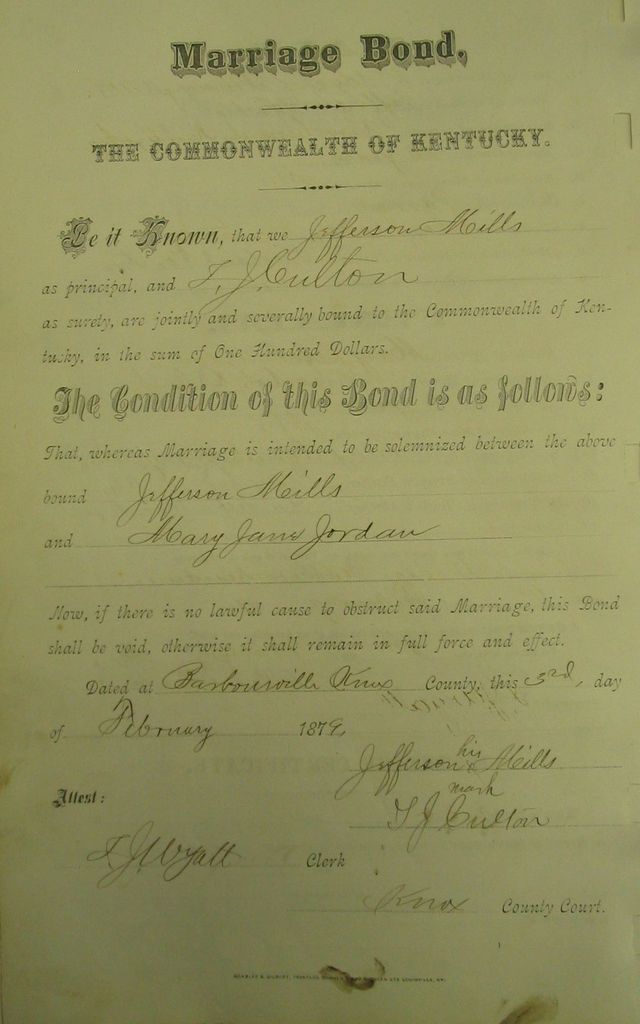 Marriage Bond.
THE COMMONWEALTH OF KENTUCKY.
Be it Known, that we Jefferson Mills
as principal, and T. J. Culton
as surety, are jointly and severally bound to the Commonwealth of Ken-
tucky, in the sum of One Hundred Dollars.
The Condition of this Bond is as follows:
That, whereas Marriage is intended to be solemnized between the above
bound Jefferson Mills
and Mary Jane Jordan
Now, if there is no lawful cause to obstruct said Marriage, this Bond
shall be void, otherwise it shall remain in full force and effect.
Dated at Barbourville Knox County, this 3rd, day
of February 1879,
Jefferson his x mark Mills
Attest:
T J Culton
Wyatt Clerk
Knox County Court.